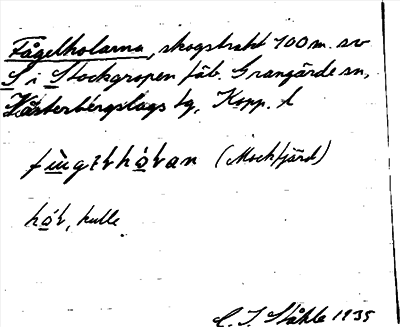 Fågelholarna, skogstrakt 700 m. av
S i Stockgropen fäb. Grangärde sn,
Västerbergslags tg, Kopp. l
(Mockfjärd)
kulle
C. I. Ståhle 1935